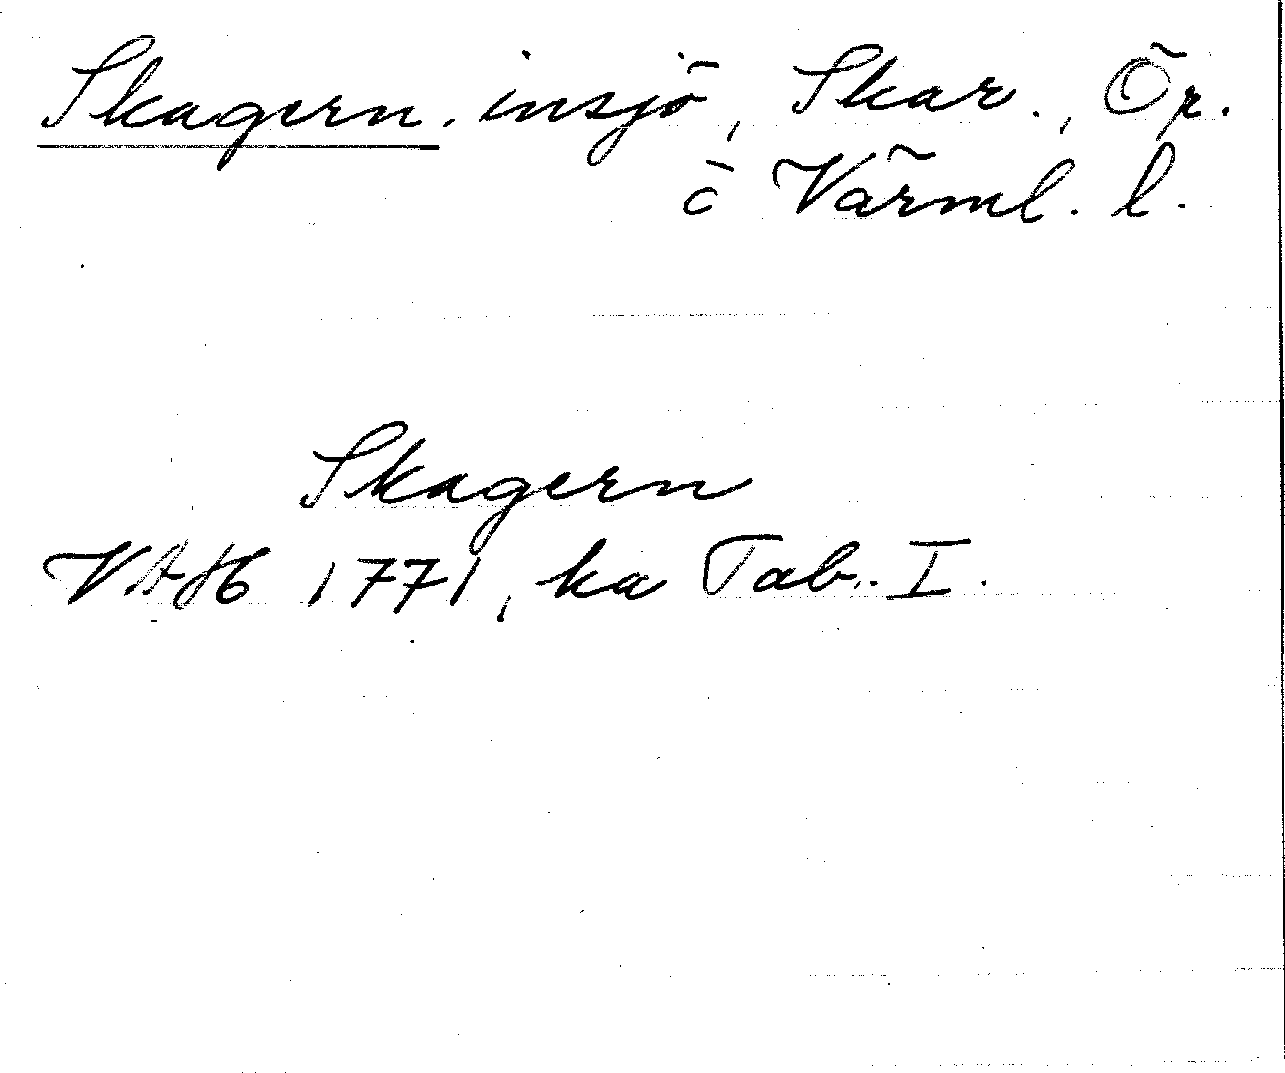 Skagern. insjö, Skar., Ör.
o Värml. l.
Skagern
VAH 1771, ka Tab. I.